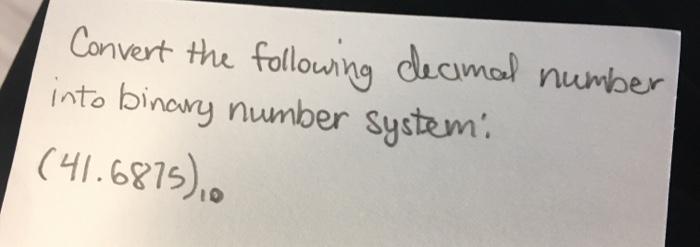 Convert the following decimal number
into binary number system:
(41.6875)₁₀